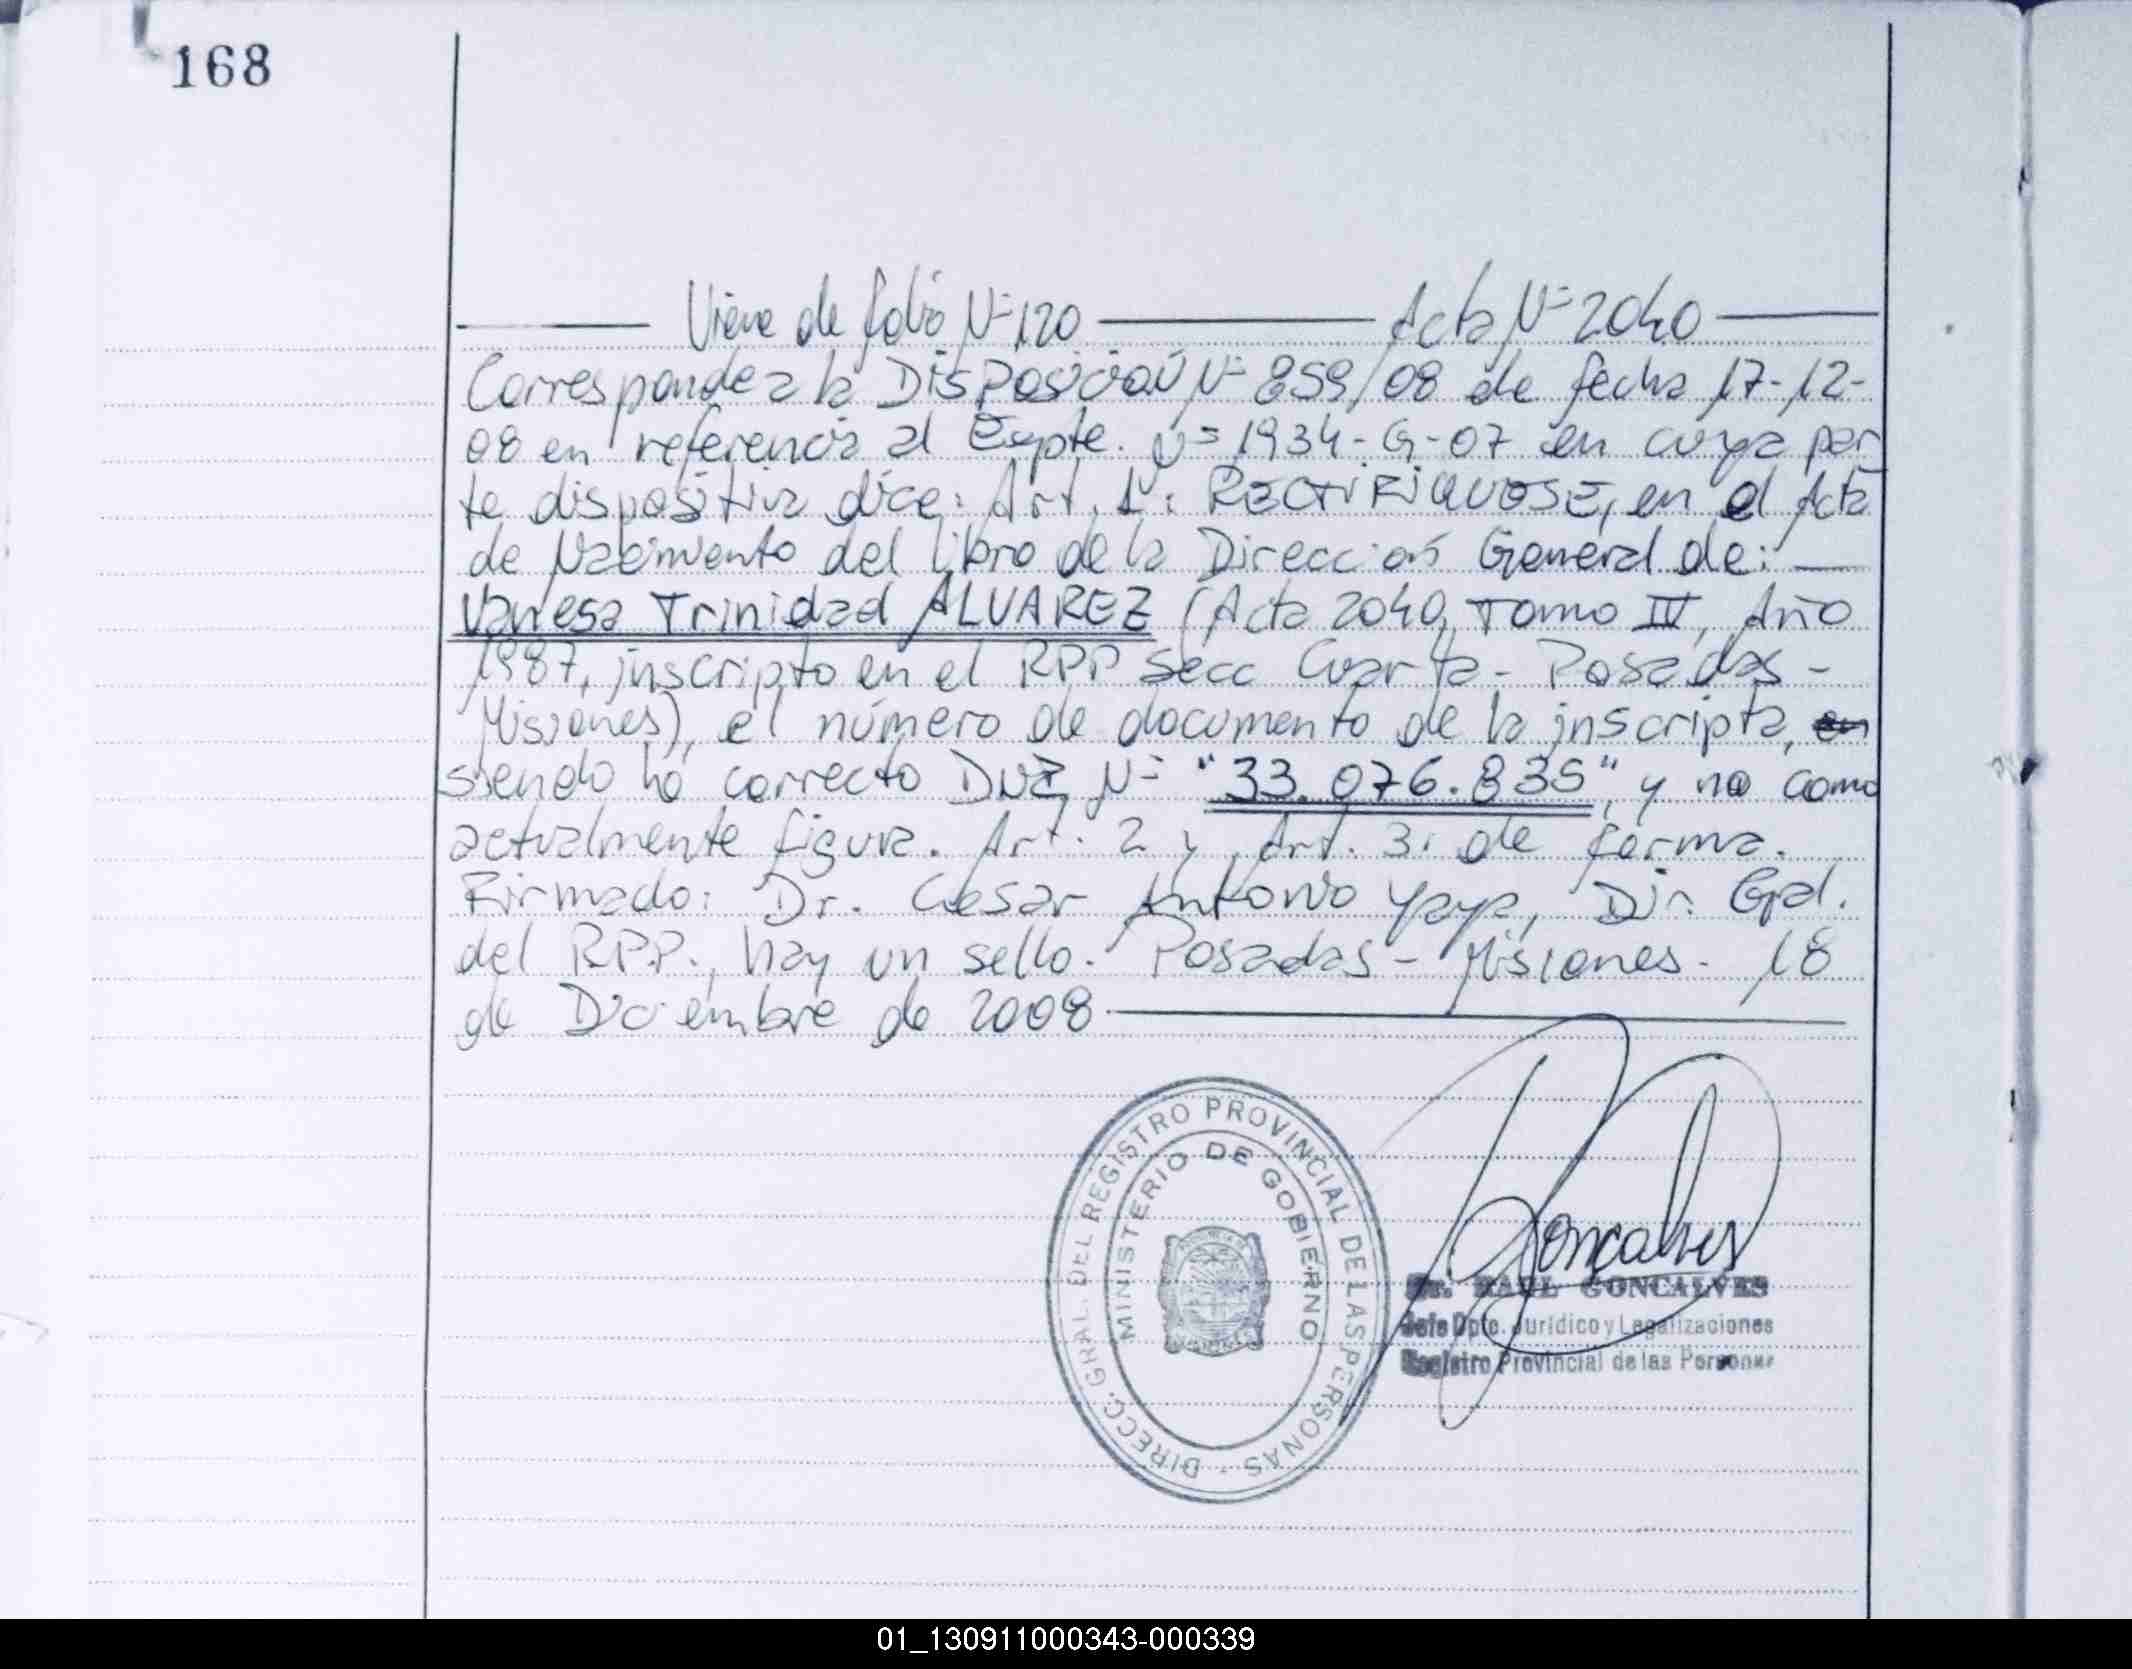 168
Viene de folio Nº 120 Acta Nº 2040
Corresponde a la DISPOSICIÓN Nº 859/08 de fecha 17-12-
08 en referencia al Expte. Nº 1934-G-07 en cuya par
te dispositiva dice: Art. 1º: RECTIFIQUESE, en el Acta
de Nacimiento del libro de la Dirección General de:
Vanesa Trinidad ALVAREZ (Acta 2040, Tomo IV, Año
1987, inscripto en el RPP Secc Cuarta - Posadas -
Misiones), el número de documento de la inscripta, en
siendo lo correcto DNI Nº "33.076.835", y no como
actualmente figura. Art. 2 y Art. 3. de forma.
Firmado: Dr. Cesar Antonio Yaya, Dir. Gral.
del R.P.P., hay un sello. Posadas - Misiones. 18
de Diciembre de 2008
DIRECC. GRAL. DEL REGISTRO PROVINCIAL DE LAS PERSONAS -
MINISTERIO DE GOBIERNO
Goncalves
Dr. RAUL GONCALVES
Jefe Dpto. Jurídico y Legalizaciones
Registro Provincial de las Personas
01_130911000343-000339